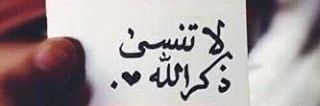 لا تنسى
ذكر الله ♥.